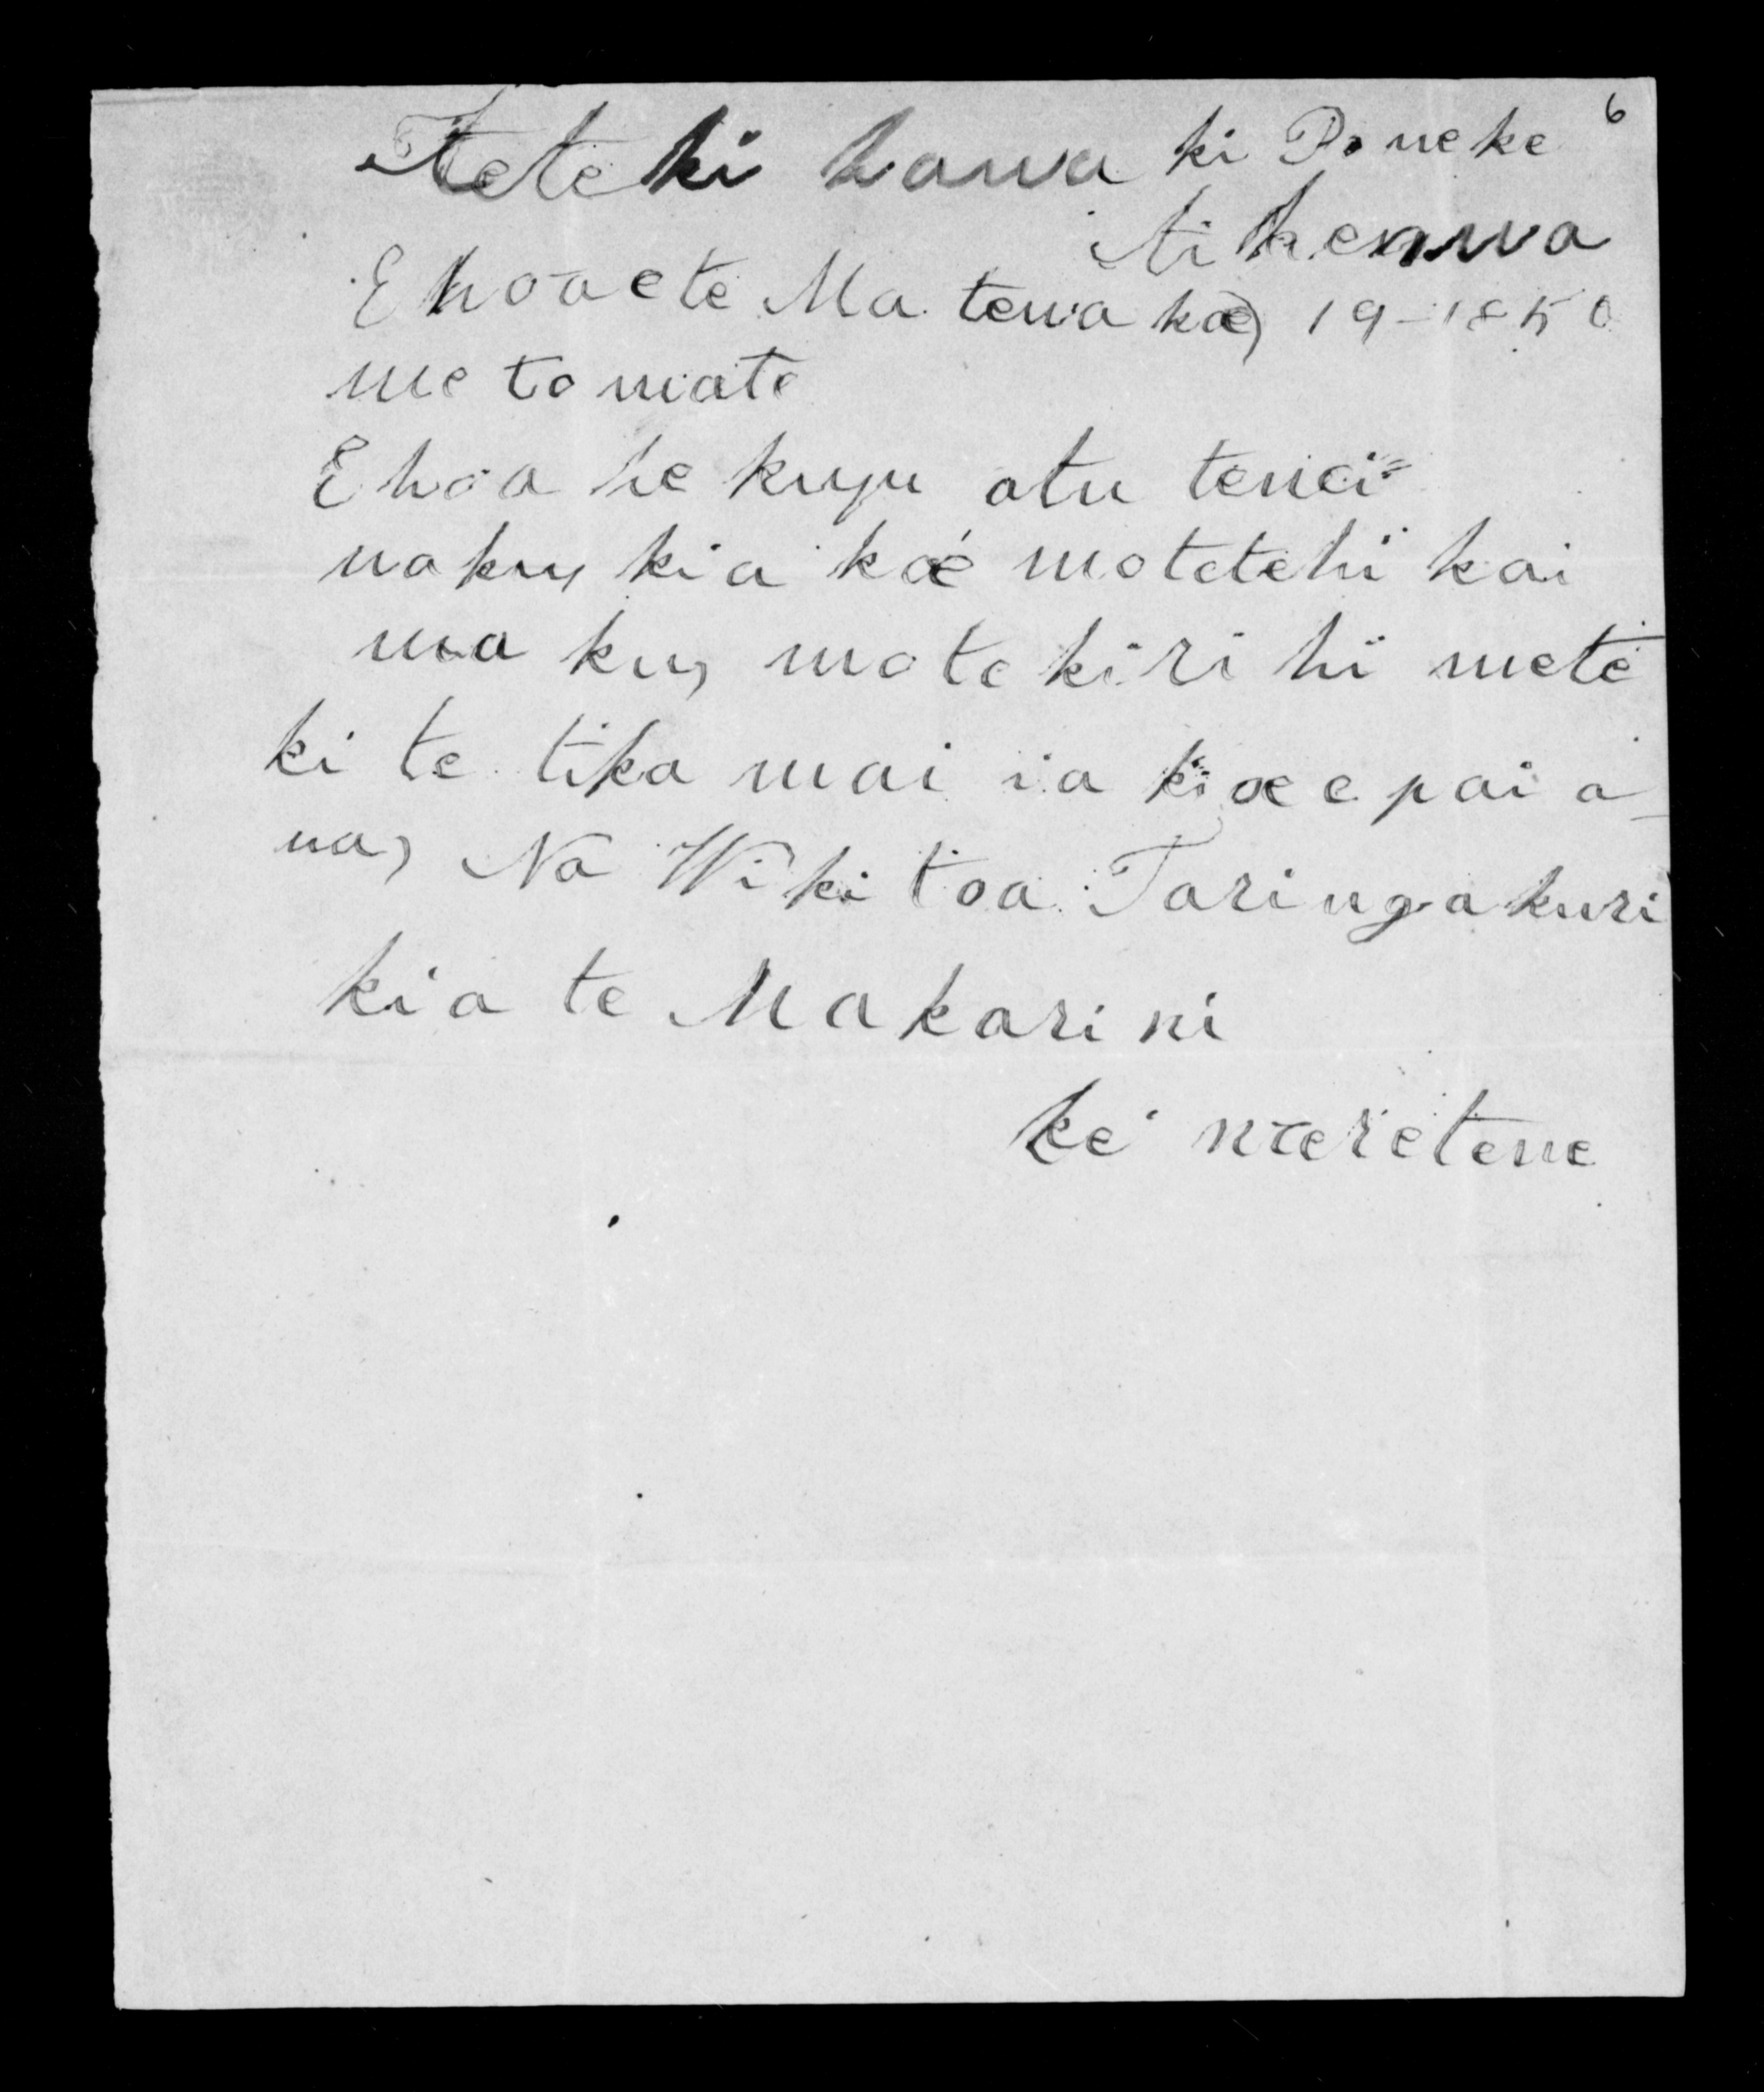 6
Teteki hawa ki Poneke
Tihemwa
E hoa e te Ma tena koe, 19 - 1850
me to mate
E hoa he kupu atu tenei
naku, kia koe motetehi kai
ma ku, mo te kiri hi mete
ki te tika mai ia koe e pai a-
na, Na Wi ki toa Taringakuri
kia te Makarini
kei nieretene